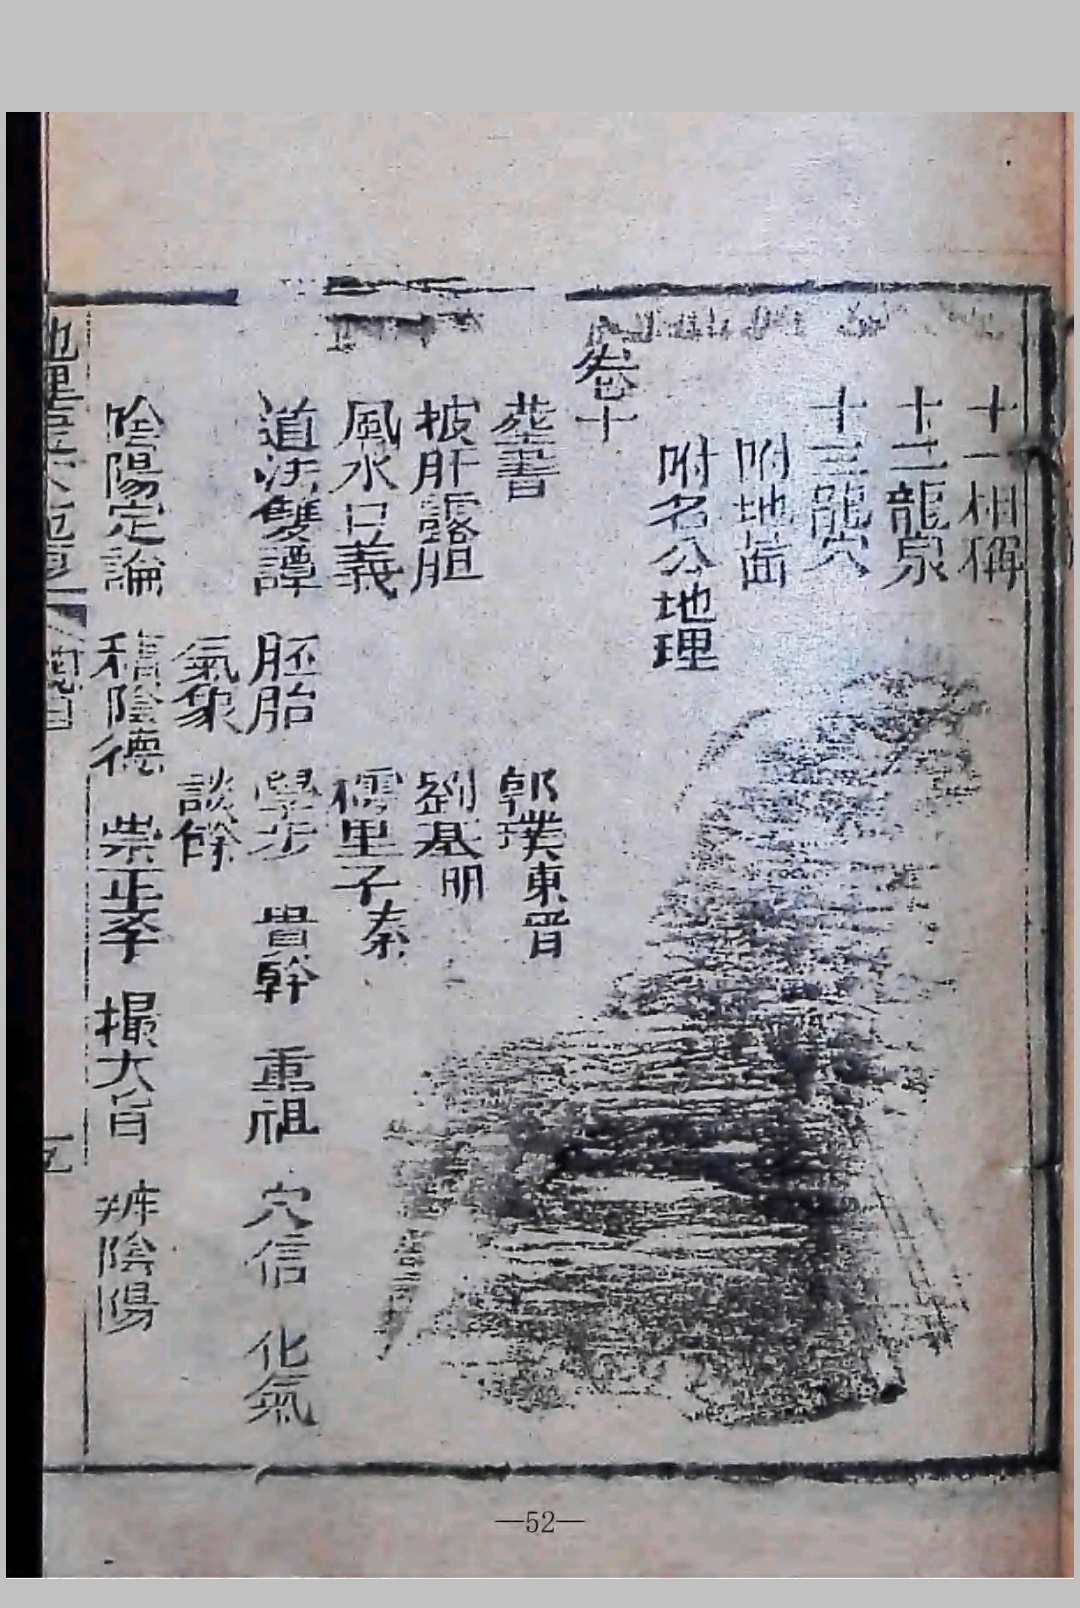 十一相稱
十二龍泉
十三龍穴
附地啚
附名公地理
卷十
葬書 郭璞東晋
披肝露胆 刘基明
風水口義 樗里子秦
道法雙譚 胚胎 學步 貴幹 重祖 穴信 化氣
氣象 談餘
陰陽定論 積陰德 崇正李 撮大旨 辨陰陽
—52—